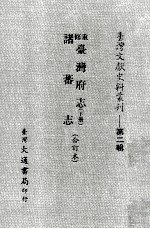 臺灣文獻史料叢刊——第二輯
重修臺灣府志(下冊)
諸蕃志
(合訂本)
臺灣大通書局印行